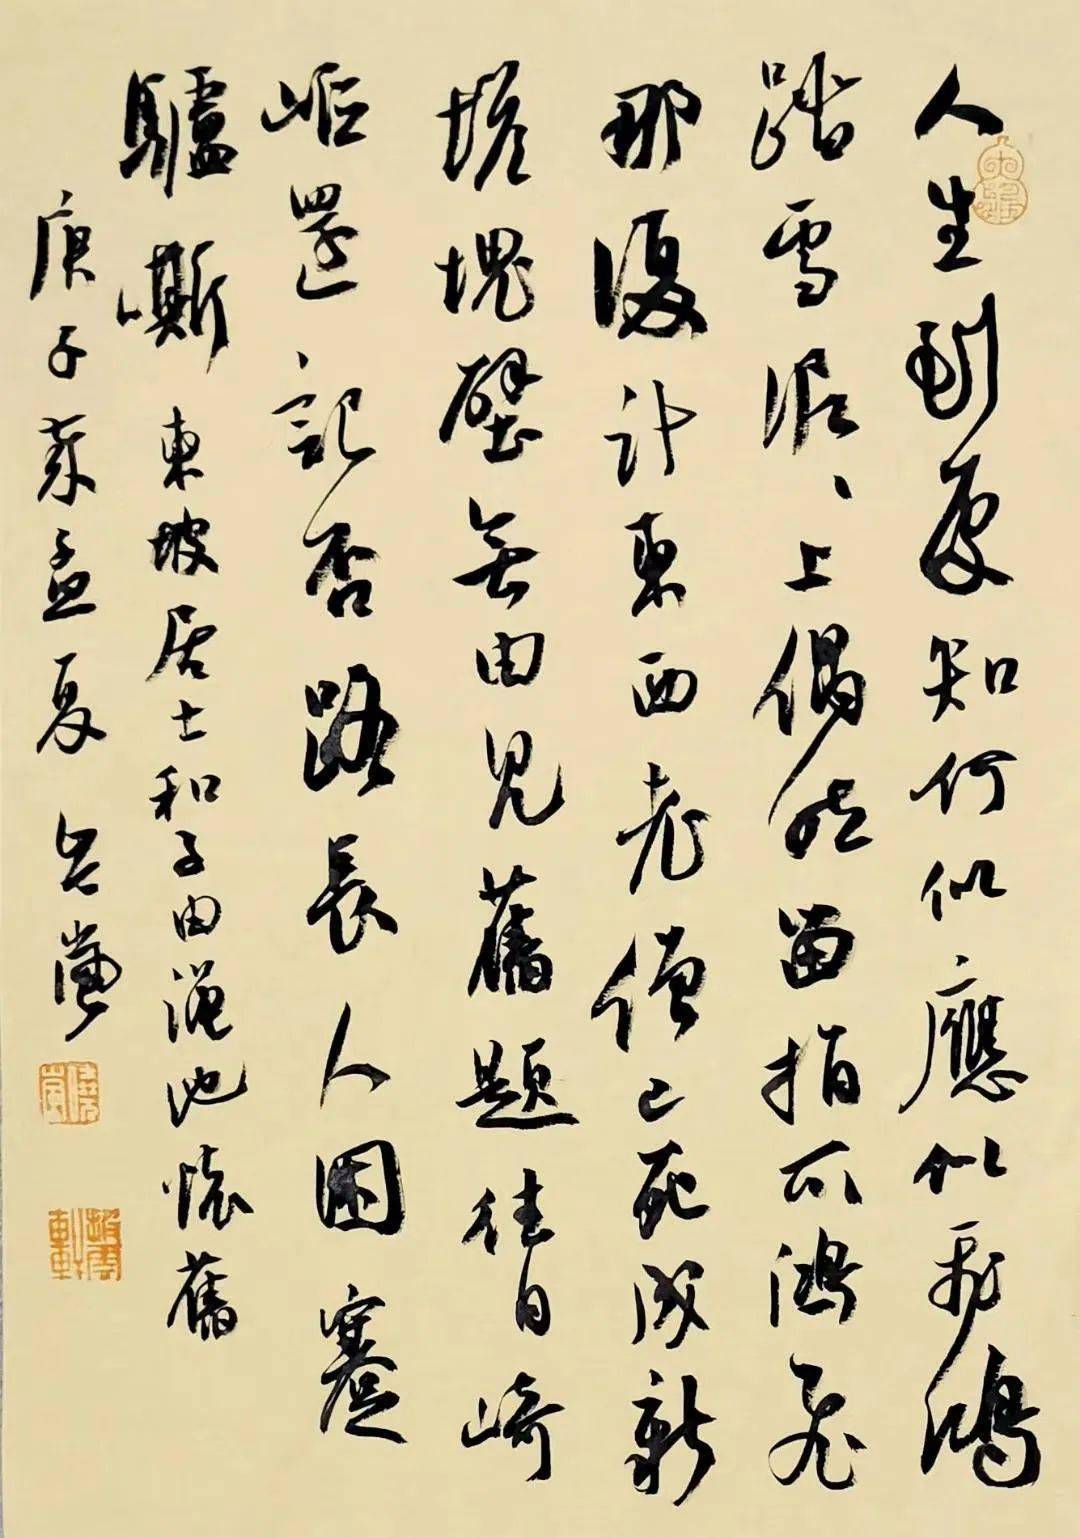 人生到處知何似應似飛鴻
踏雪泥、上偶然留指爪鴻飛
那復計東西老僧已死成新
塔壞壁無由見舊題往日崎
嶇還記否路長人困蹇
驢嘶 東坡居士和子由澠池懷舊
庚子年孟夏